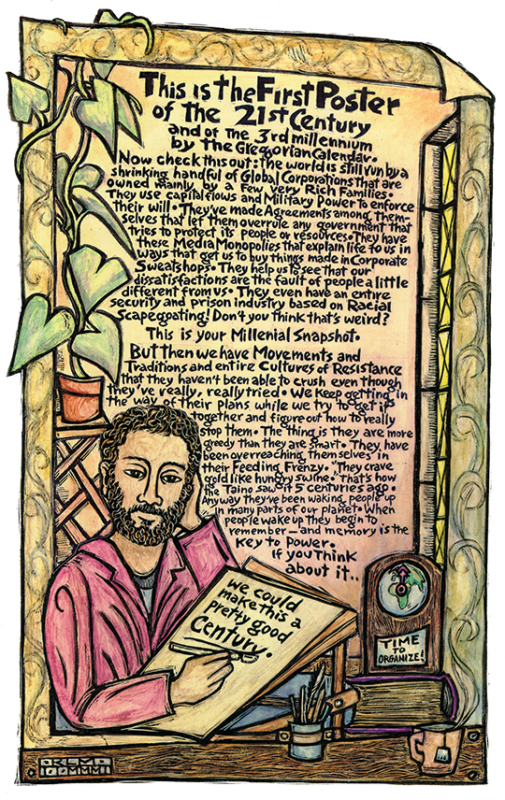 This is the First Poster
of the 21st Century
and of the 3rd millennium
by the Gregorian Calendar.
Now check this out: the world is still run by a
shrinking handful of Global Corporations that are
owned mainly by a Few very Rich Families.
They use capital flows and Military Power to enforce
their will • They've made Agreements among them-
selves that let them overrule any government that
tries to protect its people or resources • They have
these Media Monopolies that explain life to us in
ways that get us to buy things made in Corporate
Sweatshops • They help us to see that our
dissatisfactions are the fault of people a little
different from us • They even have an entire
security and prison industry based on Racial
Scapegoating! Don't you think that's weird?
This is your Millenial Snapshot.
But then we have Movements and
Traditions and entire Cultures of Resistance
that they haven't been able to crush even though
they've really, really tried • We keep getting in
the way of their plans while we try to get it
together and figure out how to really
stop them • The thing is they are more
greedy than they are smart • They have
been overreaching themselves in
their Feeding Frenzy • "They crave
gold like hungry swine • That's how
the Taino saw it 5 centuries ago •
Anyway they've been waking people up
in many parts of our planet • When
people wake up they begin to
remember — and memory is the
key to Power.
If you Think
about it..
we could
make this a
pretty good
Century.
TIME
TO
ORGANIZE!
RLM